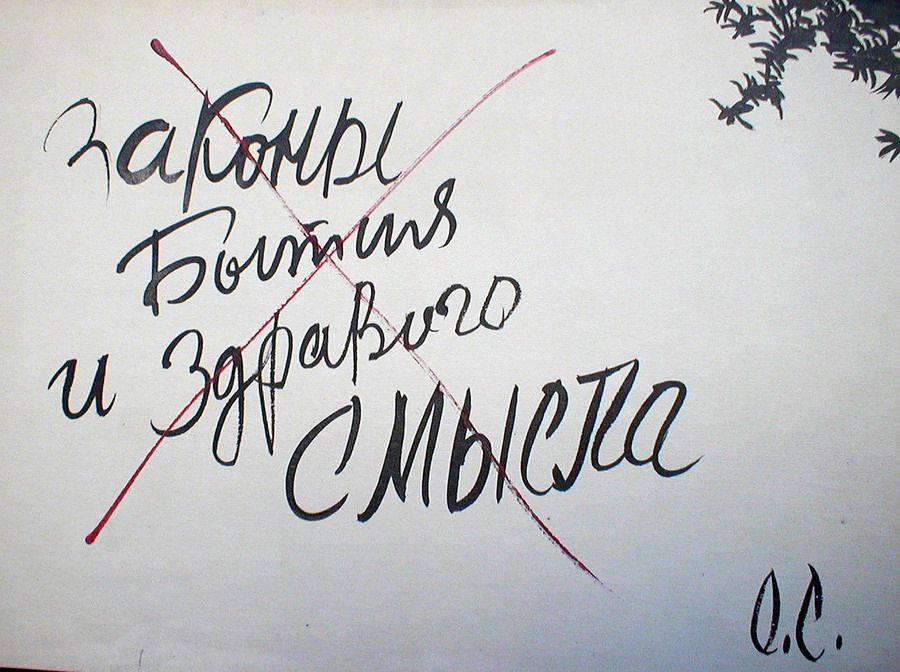 законы
Бытия
и здравого
смысла
О.С.